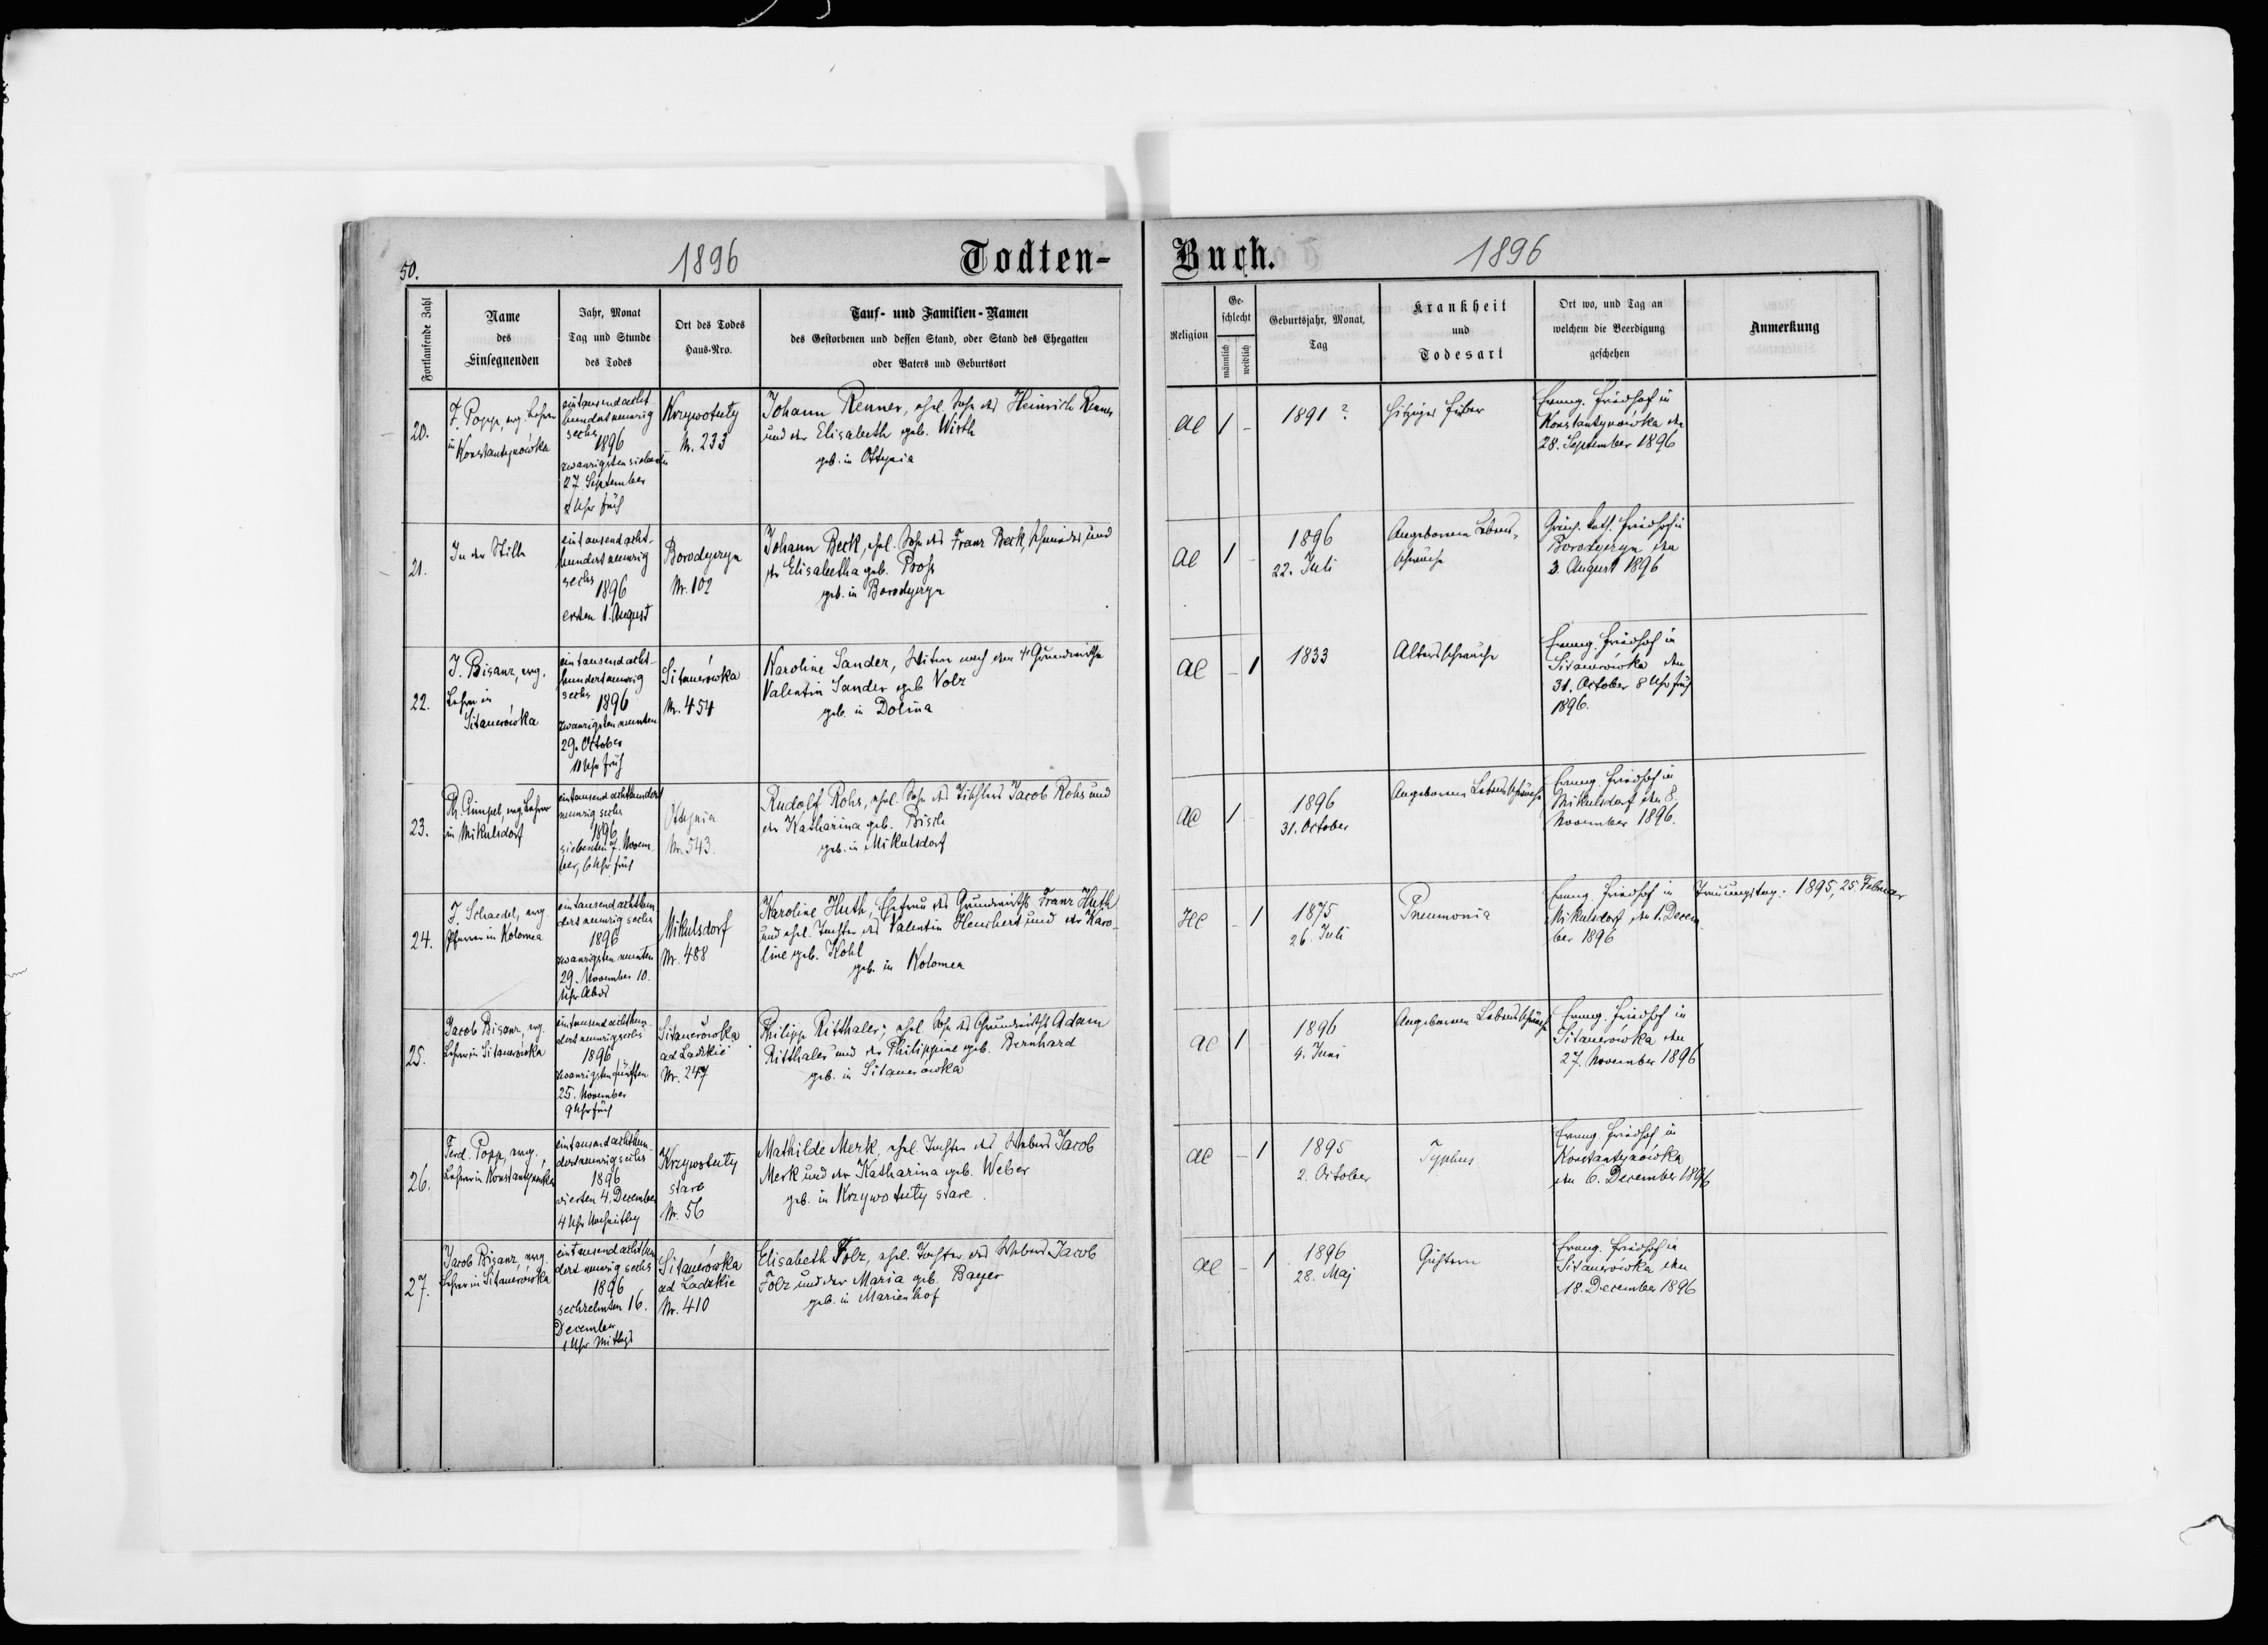 50.
1896
Todten-
Buch.
1896
Fortlaufende Zahl
Name
des
Einsegnenden
Jahr, Monat
Tag und Stunde
des Todes
Ort des Todes
Haus-Nro.
Tauf- und Familien-Namen
des Gestorbenen und dessen Stand, oder Stand des Ehegatten
oder Vaters und Geburtsort
Religion
Ge-
schlecht
männlich
weiblich
Geburtsjahr, Monat,
Tag
Krankheit
und
Todesart
Ort wo, und Tag an
welchem die Beerdigung
geschehen
Anmerkung
20.
F. Popp, evg. Lehrer
in Konstantynówka
eintausendacht-
hundertneunzig
sechs
1896
zwanzigsten siebenten
27. September
2 Uhr früh
Krzywotuły
Nr. 233
Johann Renner, ehel. Sohn des Heinrich Renner
und der Elisabeth geb. Wirth
geb. in Ottynia
AC
1
-
1891?
hitziges Fieber
Evang. Friedhof in
Konstantynówka den
28. September 1896
21.
In der Stille
eintausendacht-
hundertneunzig
sechs
1896
ersten 1. August
Borodyczyn
Nr. 102
Johann Beck, ehel. Sohn des Franz Beck, Schmiedes, und
der Elisabetha geb. Pross
geb. in Borodyczyn
AC
1
-
1896
22. Juli
Angeborene Lebens-
schwäche
Griech. kath. Friedhof in
Borodyczyn den
3. August 1896
22.
J. Bisanz, evg.
Lehrer in
Sitauerówka
eintausendacht-
hundertneunzig
sechs
1896
zwanzigsten neunten
29. October
11 Uhr früh
Sitauerówka
Nr. 454
Karoline Sander, Witwe nach dem † Grundwirthe
Valentin Sander geb Volz
geb. in Dolina
AC
-
1
1833
Altersschwäche
Evang. Friedhof in
Sitauerówka den
31. October 8 Uhr früh
1896.
23.
Ph. Gimpel, evg. Lehrer
in Mikulsdorf
eintausend achthundert
neunzig sechs
1896
siebenten 7. Novem
ber, 6 Uhr früh
Ottynia
Nr. 543.
Rudolf Rohs, ehel. Sohn des Tischlers Jacob Rohs und
der Katharina geb. Bisch
geb. in Mikulsdorf
AC
1
-
1896
31. October
Angeborene Lebensschwäche
Evang. Friedhof in
Mikulsdorf den 8.
November 1896.
24.
J. Schaedel, evg.
Pfarrer in Kolomea
eintausend achthun
dert neunzig sechs
1896
zwanzigsten neunten
29. November 10.
Uhr Abds
Mikulsdorf
Nr. 488
Karoline Huth, Ehefrau des Grundwirths Franz Huth
und ehel. Tochter des Valentin Heuchert und der Karo-
line geb. Kohl
geb. in Kolomea
HC
-
1
1875
26. Juli
Pneumonia
Evang. Friedhof in
Mikulsdorf den 1. Decem
ber 1896
Trauungstag: 1895, 25. Februar
25.
Jacob Bisanz, evg.
Lehrer in Sitauerówka
eintausend achthun-
dert neunzig sechs
1896
zwanzigsten fünften
25. November
9 Uhr früh
Sitauerówka
ad Ladzkie
Nr. 247
Philipp Ritthaler, ehel. Sohn des Grundwirths Adam
Ritthaler und der Philippine geb. Bernhard
geb. in Sitauerówka
AC
1
-
1896
4. Juni
Angeborene Lebensschwäche
Evang. Friedhof in
Sitauerówka den
27. November 1896
26.
Ferd. Popp, evg.
Lehrer in Konstantynówka
eintausend achthun
dert neunzig sechs
1896
vierten 4. December
4 Uhr Nachmittag
Krzywotuły
stare
Nr. 56
Mathilde Merk, ehel. Tochter des Webers Jacob
Merk und der Katharina geb. Weber
geb. in Krzywotuły stare.
AC
-
1
1895
2. October
Typhus
Evang. Friedhof in
Konstantynówka
den 6. December 1896
27.
Jacob Bisanz, evg.
Lehrer in Sitauerówka
eintausend achthun
dert neunzig sechs
1896
sechzehnten 16.
December
1 Uhr Mittags
Sitauerówka
ad Ladzkie
Nr. 410
Elisabeth Folz, ehel. Tochter des Webers Jacob
Folz und der Maria geb. Bayer
geb. in Marienhof
AC
-
1
1896
28. Maj
Evang. Friedhof in
Sitauerówka den
18. December 1896